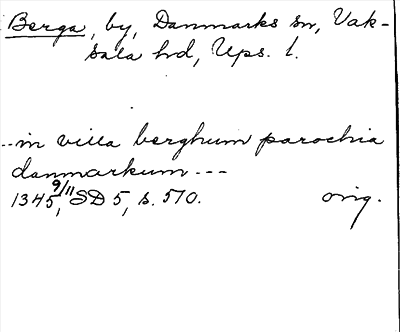 Berga, by, Danmarks sn, Vak-
sala hd, Ups. l.
--in villa berghum parochia
danmarkum ---
1345 9/11, SD 5, s. 510. orig.